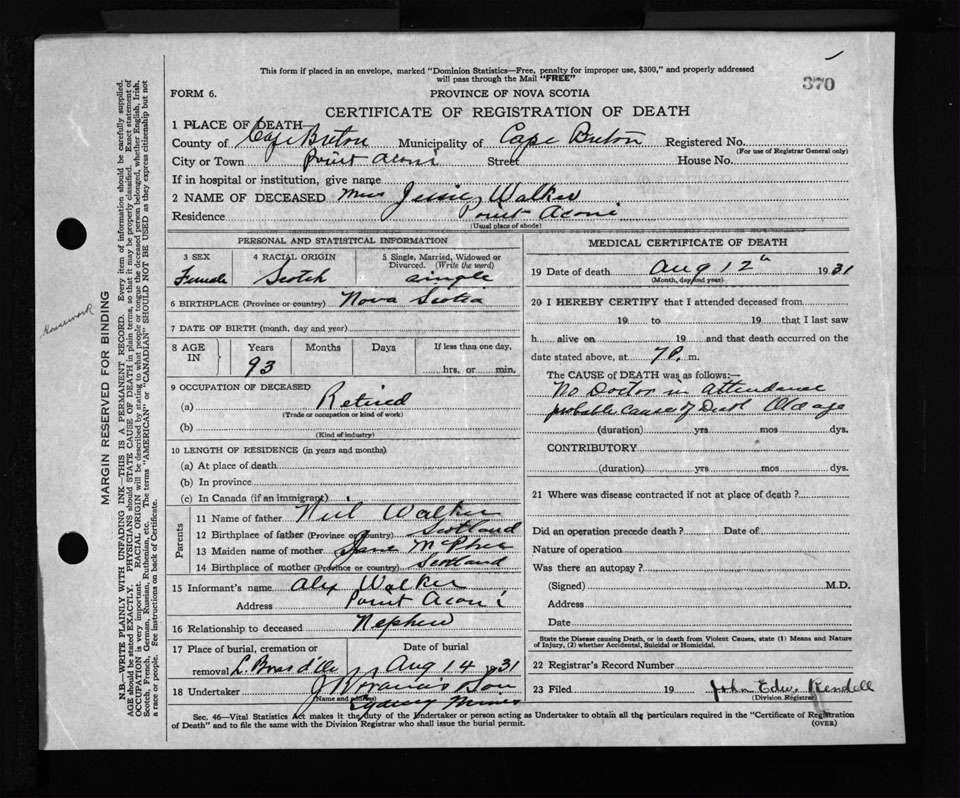 370
This form if placed in an envelope, marked "Dominion Statistics—Free, penalty for improper use, $300," and properly addressed
will pass through the Mail "FREE"
FORM 6.
PROVINCE OF NOVA SCOTIA
CERTIFICATE OF REGISTRATION OF DEATH
1 PLACE OF DEATH—
County of Cape Breton Municipality of Cape Breton Registered No.
(For use of Registrar General only)
City or Town Point Aconi Street House No.
If in hospital or institution, give name
2 NAME OF DECEASED Miss Jessie Walker
Residence Point Aconi
(Usual place of abode)
PERSONAL AND STATISTICAL INFORMATION
3 SEX 4 RACIAL ORIGIN 5 Single, Married, Widowed or
Divorced. (Write the word)
Female Scotch single
6 BIRTHPLACE (Province or country) Nova Scotia
7 DATE OF BIRTH (month, day and year)
8 AGE IN Years Months Days If less than one day,
93 hrs. or min.
9 OCCUPATION OF DECEASED
(a) Retired
(Trade or occupation or kind of work)
(b)
(Kind of industry)
10 LENGTH OF RESIDENCE (in years and months)
(a) At place of death
(b) In province
(c) In Canada (if an immigrant)
Parents
11 Name of father Neil Walker
12 Birthplace of father (Province or country) Scotland
13 Maiden name of mother Jane McPhee
14 Birthplace of mother (Province or country) Scotland
15 Informant's name Alex Walker
Address Point Aconi
16 Relationship to deceased Nephew
17 Place of burial, cremation or Date of burial
removal L. Bras d'Or Aug 14 1931
18 Undertaker Son
(Name and address)
Sydney Mines
MEDICAL CERTIFICATE OF DEATH
19 Date of death Aug 12th 1931
(Month, day and year)
20 I HEREBY CERTIFY that I attended deceased from
19 to 19 that I last saw
h alive on 19 and that death occurred on the
date stated above, at 7 P. m.
The CAUSE of DEATH was as follows:—
No Doctor in attendance
probable Cause of Death Old age
(duration) yrs mos dys.
CONTRIBUTORY
(duration) yrs mos dys.
21 Where was disease contracted if not at place of death?
Did an operation precede death? Date of
Nature of operation
Was there an autopsy?
(Signed) M.D.
Address
Date
State the Disease causing Death, or in death from Violent Causes, state (1) Means and Nature
of Injury, (2) whether Accidental, Suicidal or Homicidal.
22 Registrar's Record Number
23 Filed 19 John Edw. Rendell
(Division Registrar)
Sec. 46—Vital Statistics Act makes it the duty of the Undertaker or person acting as Undertaker to obtain all the particulars required in the "Certificate of Registration
of Death" and to file the same with the Division Registrar who shall issue the burial permit.
(OVER)
Housework
MARGIN RESERVED FOR BINDING
N.B.—WRITE PLAINLY WITH UNFADING INK—THIS IS A PERMANENT RECORD. Every item of information should be carefully supplied.
AGE should be stated EXACTLY. PHYSICIANS should STATE CAUSE OF DEATH in plain terms, so that it may be properly classified. Exact statement of
OCCUPATION is very important. RACIAL ORIGIN will be described by stating to what people or tongue the deceased person belonged, whether English, Irish,
Scotch, French, German, Russian, Ruthenian, etc. The terms "AMERICAN" or "CANADIAN" SHOULD NOT BE USED as they express citizenship but not
a race or people. See instructions on back of Certificate.